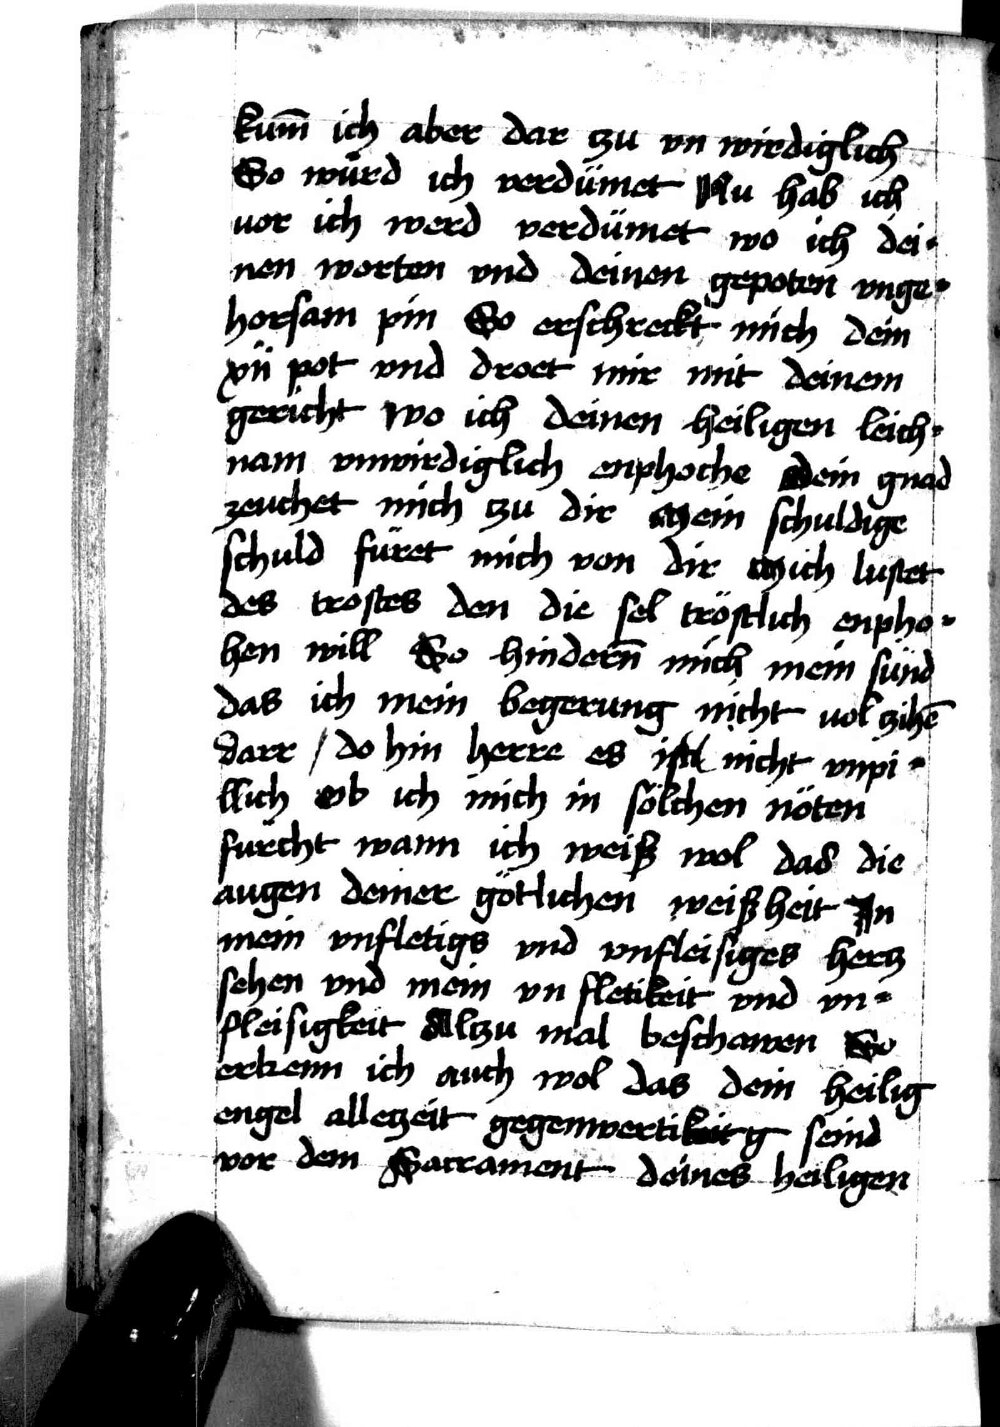 kum̅ ich aber dar tzu vn wirdiglich
So würd ich verdümet Nu hab ich
vor ich werd verdümet wo ich dei-
nen worten vnd deinen gepoten vnge-
horsam pin So erschreckt mich dein
pot vnd droet mir mit deinem
gericht wo ich deinen heiligen leich-
nam vnwirdiglich enphoche Dein gnad
zeuchet mich tzu dir Mein schuldige
schuld füret mich von dir Mich lustet
des trostes den die sel tröstlich enpho-
hen will So hindern̅ mich mein sünd
das ich mein begerung nicht vol zihe̅
darr / do hin herre es ist nicht vnpi-
llich ob ich mich in sölchen nöten
fürcht wann ich weiß wol das die
augen deiner götlichen weißheit In
mein vnfletigs vnd vnfleisiges hertz
sehen vnd mein vn fletikeit vnd vn-
fleisigkeit Altzu mal beschawen So
erkenn ich auch wol das dein heilig
engel alletzeit gegenwertig seind
vor dem Sacrament deines heiligen